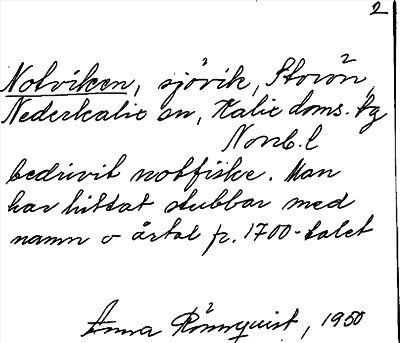 2
Notviken, sjövik, Storön,
Nederkalix sn, Kalix doms. tg
Norrb. l
bedrivit notfiske. Man
har hittat stubbar med
namn o årtal fr. 1700-talet
Anna Rönnquist, 1950